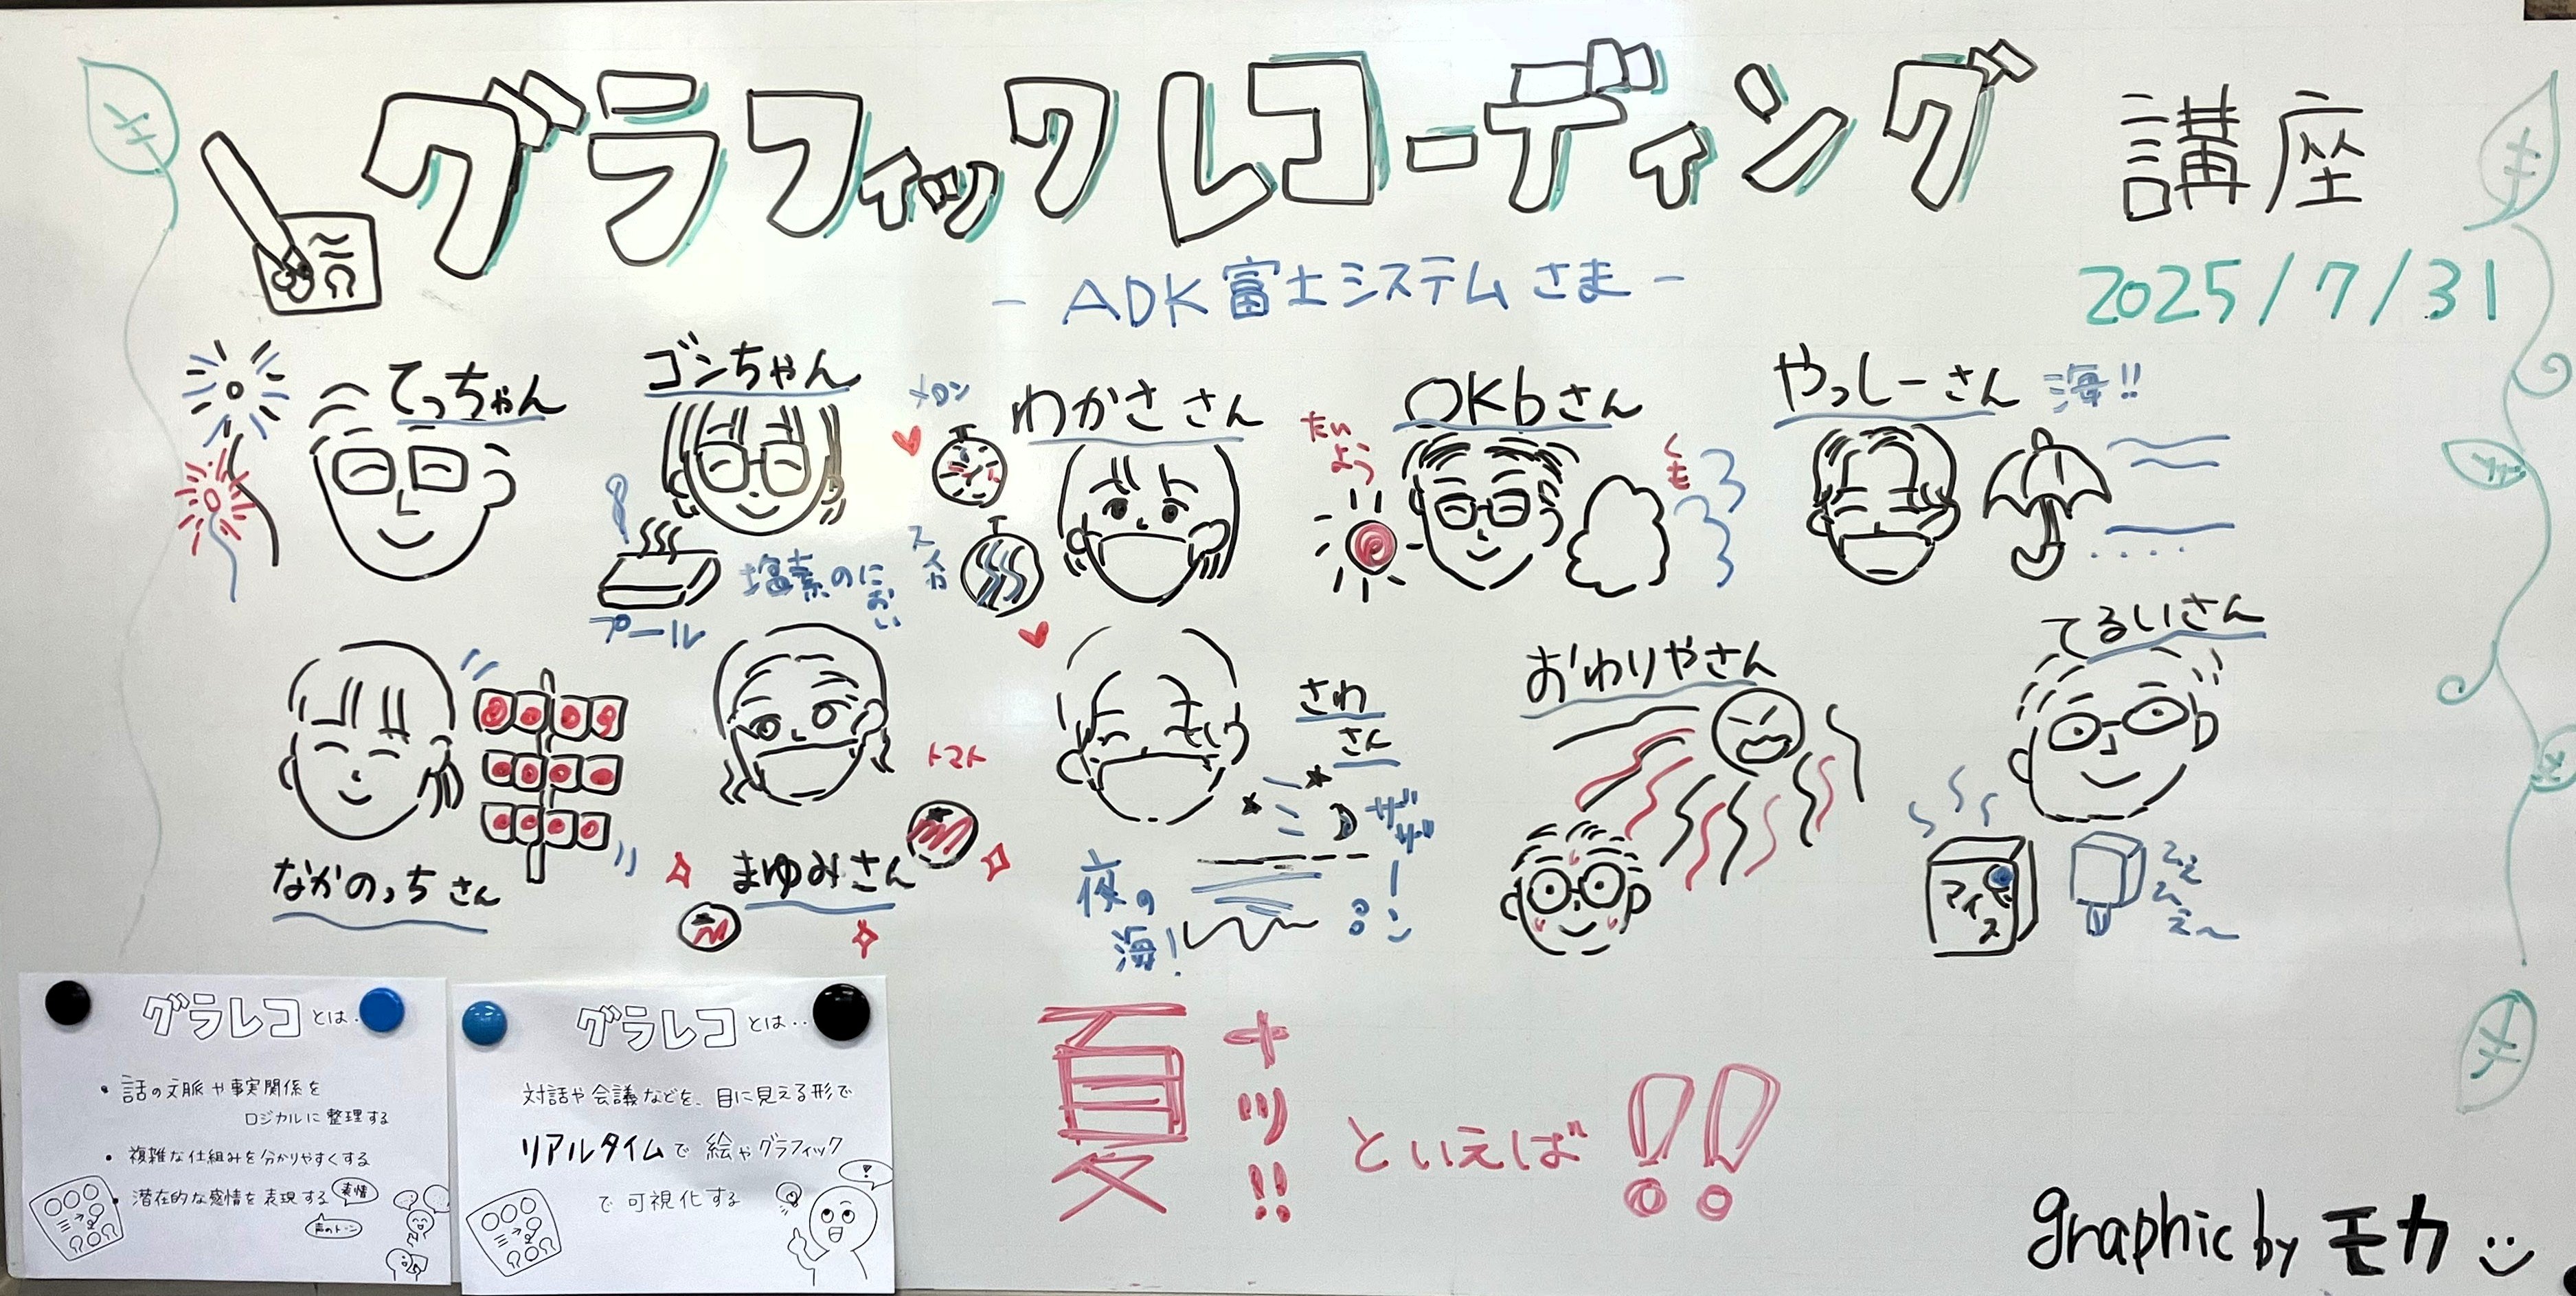 グラフィックレコーディング 講座
- ADK富士システムさま -
2025/7/31
てっちゃん
ゴンちゃん
プール
塩素のにおい
メロン
スイカ
わかささん
たいよう
OKbさん
くも
やっしーさん
海!!
なかのっちさん
まゆみさん
トマト
さわさん
夜の海!
ザザーン
おわりやさん
てるいさん
アイス
グラレコとは..
・話の文脈や事実関係を
ロジカルに整理する
・複雑な仕組みを分かりやすくする
・潜在的な感情を表現する
表情
声のトーン
グラレコとは..
対話や会議などを、目に見える形で
リアルタイムで絵やグラフィック
で可視化する
!
夏 ナツ!! といえば!!
graphic by モカ